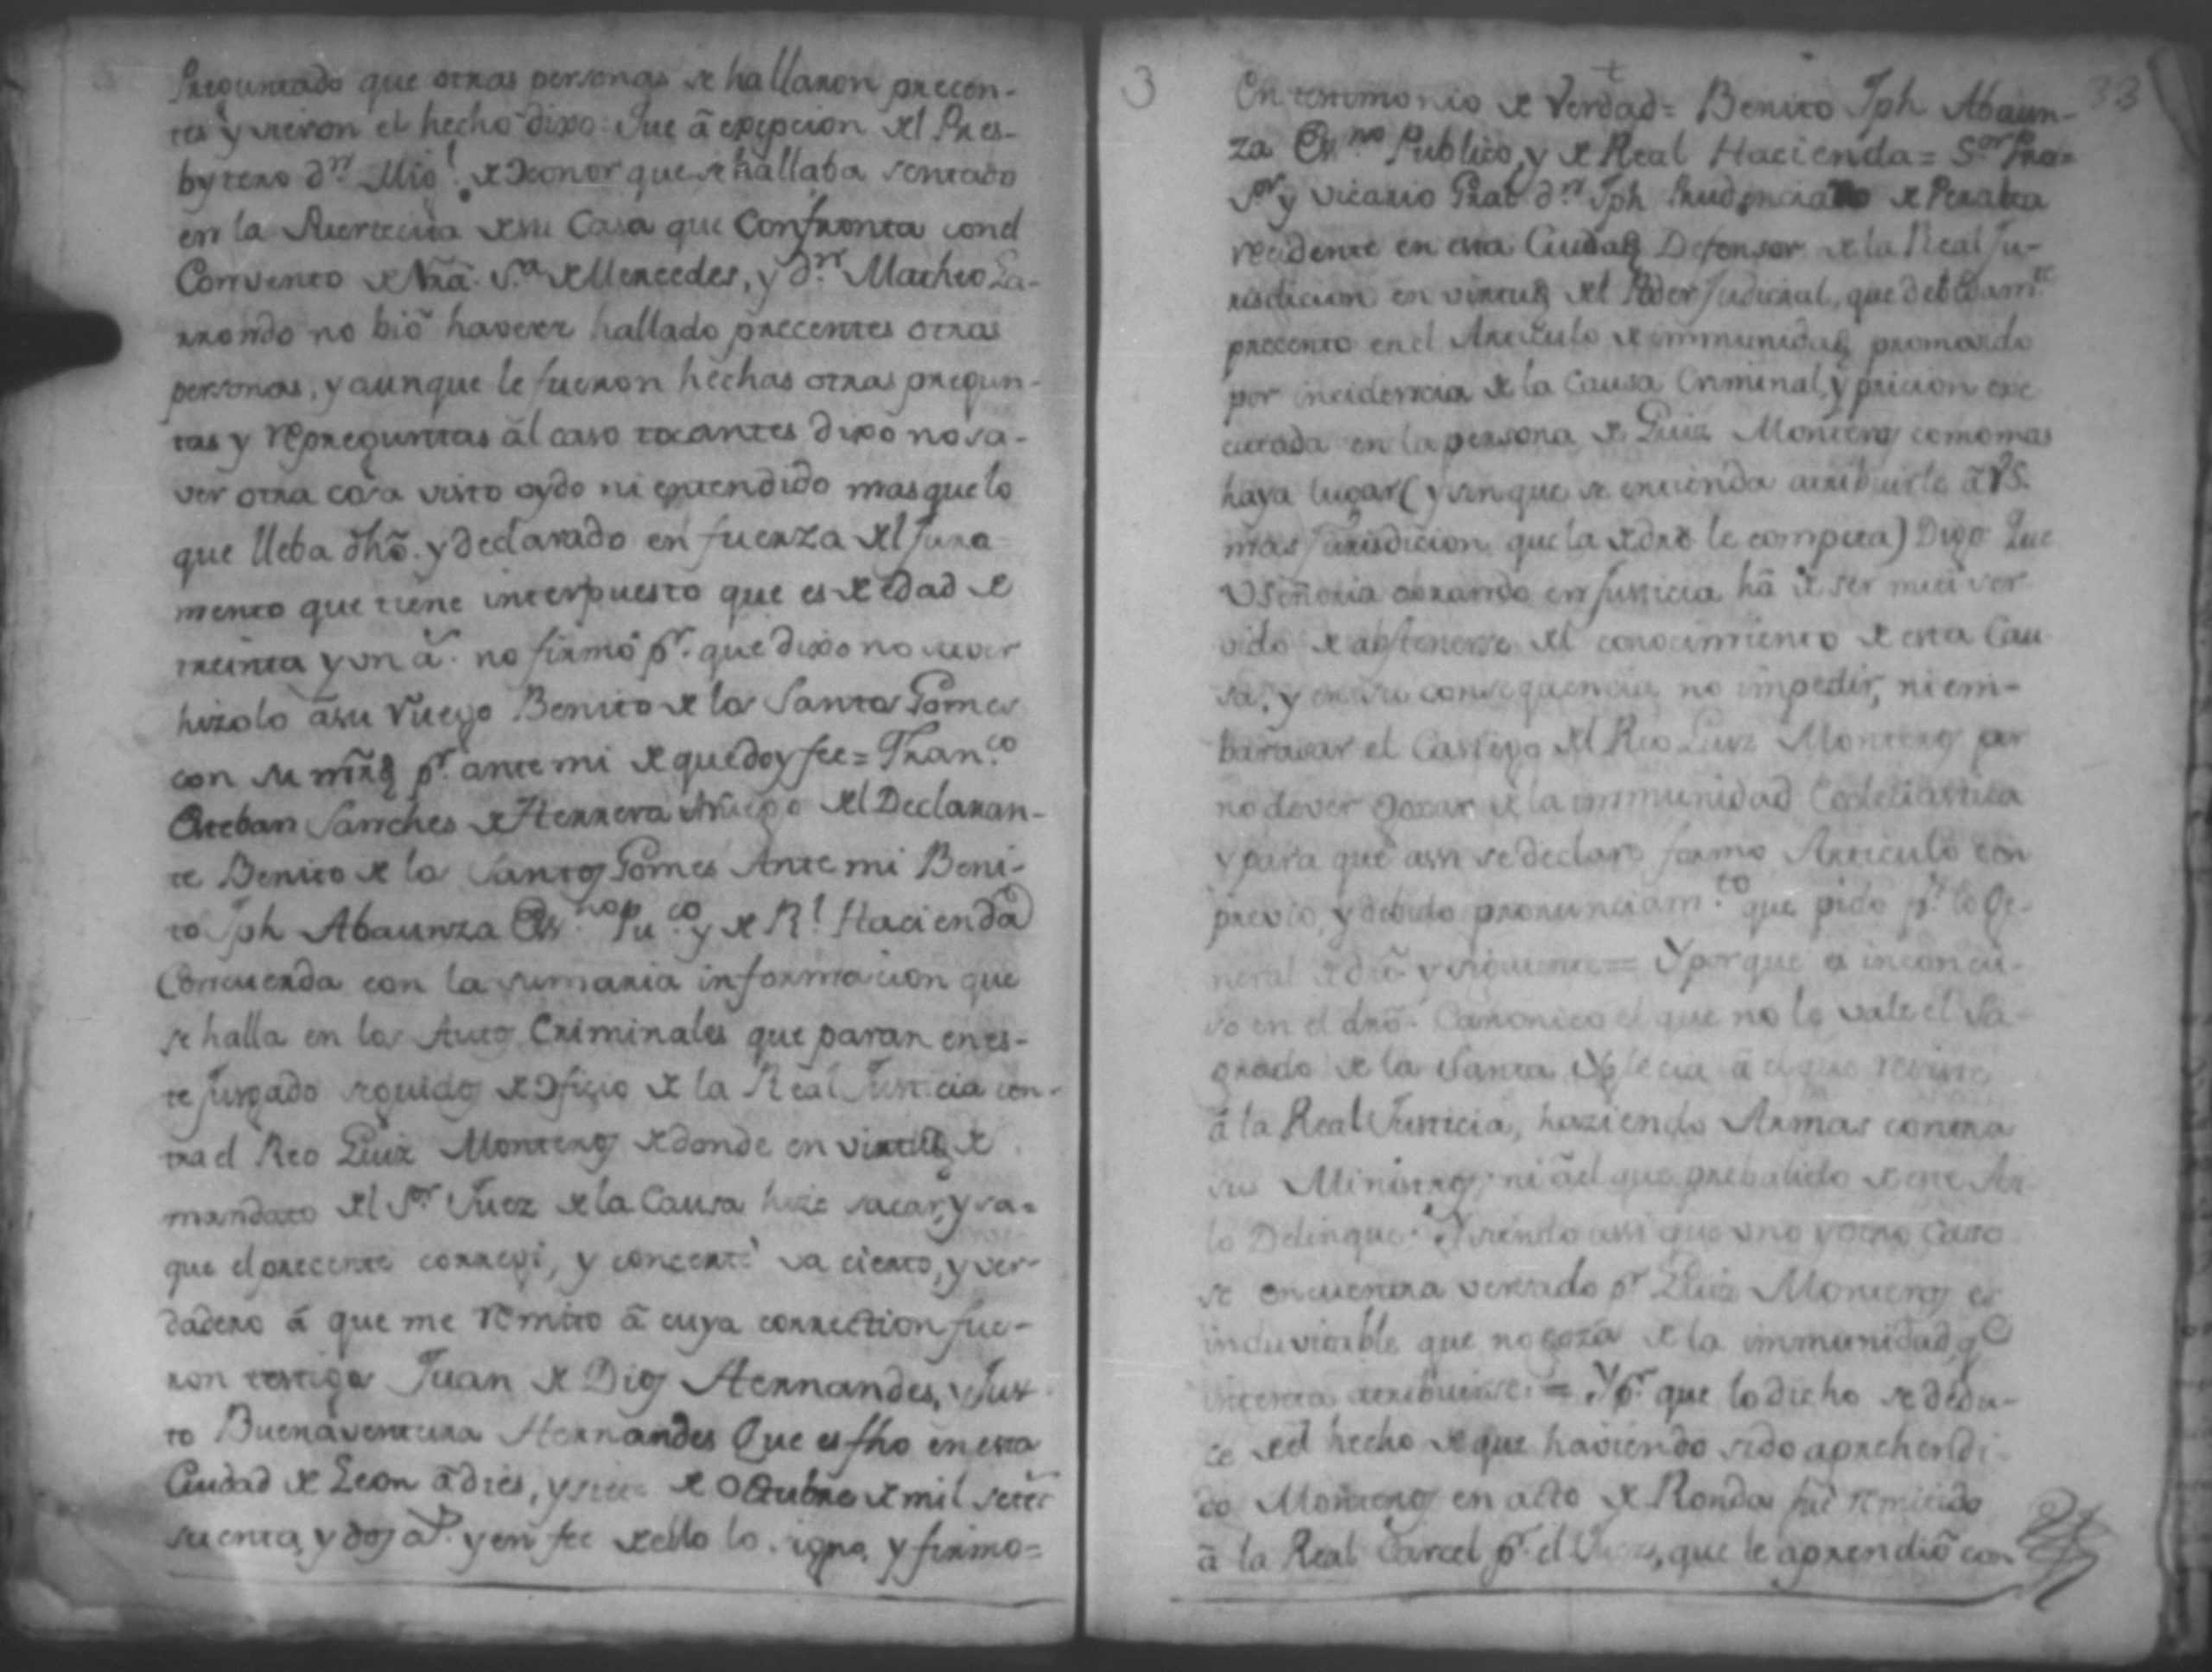 Preguntado que otras personas se hallaron precen-
tes y vieron el hecho dixo: Que â exepcion del Pres-
bytero dn. Migl. de que se hallaba sentado
en la Puertecita de su Casa que Confronta con el
Convento de Nrâ. Sra. de Mercedes, y dn. Matheo La-
rrondo no biô haverse hallado precentes otras
personas, y aunque le fueron hechas otras pregun-
tas y repreguntas âl caso tocantes dixo no sa-
ver otra cosa visto oydo ni entendido mas que lo
que lleba dhô. y declarado en fuerza del Jura-
mento que tiene interpuesto que es de edad de
treinta y un a. no firmô pr. que dixo no saver
hizolo â su Ruego Benito de los Santos Gomes
con su mrd pr. ante mi de que doy fee = Franco.
Esteban Sanches de Herrera â Ruego del Declaran-
te Benito de los Santos Gomes Ante mi Beni-
to Jph Abaunza Essno. Puco. y de Rl. Hacienda
Concuerda con la sumaria informacion que
se halla en los Autos Criminales que paran en es-
te Jusgado seguidos de Oficio de la Real Justicia con-
tra el Reo Luiz Montero de donde en virtud de
mandato del Sor. Juez de la Causa hize sacar, y sa-
que el precente correxi, y concerté va cierto, y ver-
dadero â que me remito â cuya correction fue-
ron testigos Juan de Dios Hernandes, y Jus-
to Buenaventura Hernandes Que es fho en esta
Ciudad de Leon â dies, y siete de Octubre de mil setec
sesenta, y dos as. y en fee de ello lo signo, y firmo=
3 33
En testimonio de Verdad = Benito Jph Abaun-
za Essno. Publico, y de Real Hacienda = Sor. Pro-
sor. y vicario Gral dn. Jph de Peralta
recidente en esta Ciudad Defensor de la Real Ju-
risdicion en virtud del Poder Judicial, que debidamte.
precento en el Articulo de immunidad promovido
por incidencia de la Causa Criminal, y pricion exe
cutada en la persona de Luiz Montero como mas
haya lugar (y sin que se entienda atribuirle â VS.
mas Jurisdicion que la de dro le competa) Digo: Que
VSeñoria obrando en Justicia hâ de ser mui ser
vido de abstenerse del conocimiento de esta Cau
sa, y en su consequencia no impedir, ni em-
barasar el Castigo del Reo Luiz Montero por
no dever gozar de la immunidad Ecclesiastica
y para que assi se declare formo Articulo con
previo, y debido pronunciamto. que pido pr. lo Ge-
neral de drô. y siguiente = Y porque es inconcu-
so en el drô. Canonico el que no le vale el Sa-
grado de la Santa Yglecia â el que reciste
â la Real Justicia, haziendo Armas contra
sus Ministros, ni âel que prebalido de este As
lo Delinque. Y siendo assi que uno y otro Caso
se encuentra versado pr. Luiz Montero es
induvitable que no goza de la immunidad qe
intenta atribuirse = Y pr. que lo dicho se dedu-
ce del hecho de que haviendo sido aprehendi-
do Montero en acto de Ronda fué remitido
â la Real Carcel pr. el Juez, que le aprendiô con